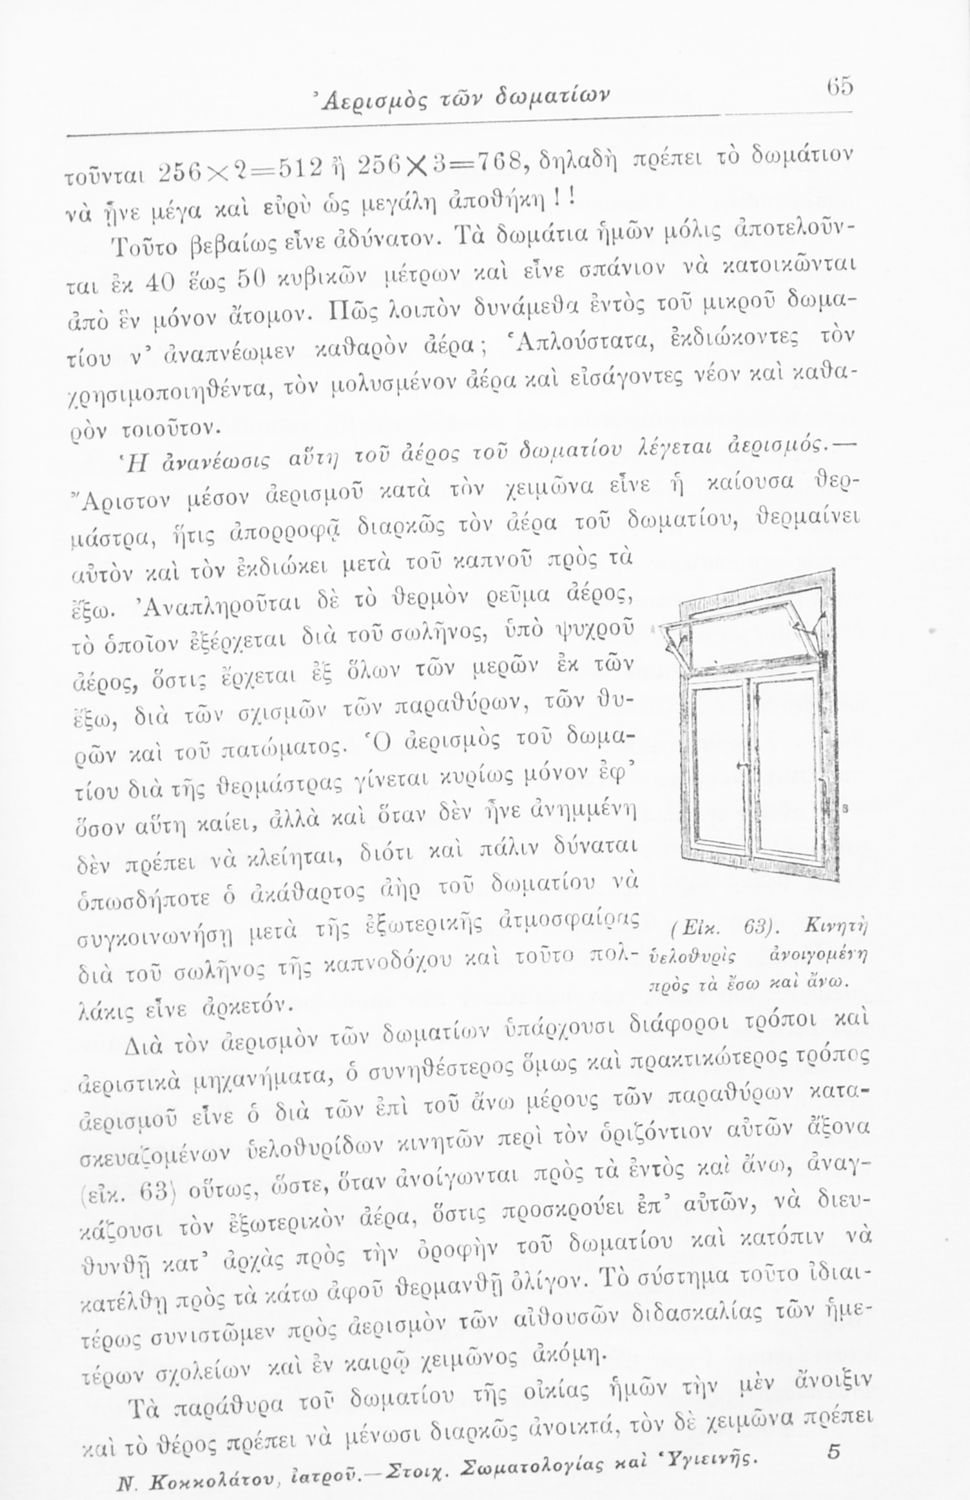 Ἀερισμὸς τῶν δωματίων 65
τοῦνται 256×2=512 ἢ 256×3=768, δηλαδὴ πρέπει τὸ δωμάτιον
νὰ ᾖνε μέγα καὶ εὐρὺ ὡς μεγάλη ἀποθήκη ! !
Τοῦτο βεβαίως εἶνε ἀδύνατον. Τὰ δωμάτια ἡμῶν μόλις ἀποτελοῦν-
ται ἐκ 40 ἕως 50 κυβικῶν μέτρων καὶ εἶνε σπάνιον νὰ κατοικῶνται
ἀπὸ ἓν μόνον ἄτομον. Πῶς λοιπὸν δυνάμεθα ἐντὸς τοῦ μικροῦ δωμα-
τίου ν’ ἀναπνέωμεν καθαρὸν ἀέρα; Ἁπλούστατα, ἐκδιώκοντες τὸν
χρησιμοποιηθέντα, τὸν μολυσμένον ἀέρα καὶ εἰσάγοντες νέον καὶ καθα-
ρὸν τοιοῦτον.
Ἡ ἀνανέωσις αὕτη τοῦ ἀέρος τοῦ δωματίου λέγεται ἀερισμός.—
Ἄριστον μέσον ἀερισμοῦ κατὰ τὸν χειμῶνα εἶνε ἡ καίουσα θερ-
μάστρα, ἥτις ἀπορροφᾷ διαρκῶς τὸν ἀέρα τοῦ δωματίου, θερμαίνει
αὐτὸν καὶ τὸν ἐκδιώκει μετὰ τοῦ καπνοῦ πρὸς τὰ
ἔξω. Ἀναπληροῦται δὲ τὸ θερμὸν ρεῦμα ἀέρος,
τὸ ὁποῖον ἐξέρχεται διὰ τοῦ σωλῆνος, ὑπὸ ψυχροῦ
ἀέρος, ὅστις ἔρχεται ἐξ ὅλων τῶν μερῶν ἐκ τῶν
ἔξω, διὰ τῶν σχισμῶν τῶν παραθύρων, τῶν θυ-
ρῶν καὶ τοῦ πατώματος. Ὁ ἀερισμὸς τοῦ δωμα-
τίου διὰ τῆς θερμάστρας γίνεται κυρίως μόνον ἐφ’
ὅσον αὕτη καίει, ἀλλὰ καὶ ὅταν δὲν ᾖνε ἀνημμένη
δὲν πρέπει νὰ κλείηται, διότι καὶ πάλιν δύναται
ὁπωσδήποτε ὁ ἀκάθαρτος ἀὴρ τοῦ δωματίου νὰ
συγκοινωνήσῃ μετὰ τῆς ἐξωτερικῆς ἀτμοσφαίρας
διὰ τοῦ σωλῆνος τῆς καπνοδόχου καὶ τοῦτο πολ-
λάκις εἶνε ἀρκετόν.
(Εἰκ. 63). Κινητὴ
ὑελοθυρὶς ἀνοιγομένη
πρὸς τὰ ἔσω καὶ ἄνω.
Διὰ τὸν ἀερισμὸν τῶν δωματίων ὑπάρχουσι διάφοροι τρόποι καὶ
ἀεριστικὰ μηχανήματα, ὁ συνηθέστερος ὅμως καὶ πρακτικώτερος τρόπος
ἀερισμοῦ εἶνε ὁ διὰ τῶν ἐπὶ τοῦ ἄνω μέρους τῶν παραθύρων κατα-
σκευαζομένων ὑελοθυρίδων κινητῶν περὶ τὸν ὁριζόντιον αὐτῶν ἄξονα
(εἰκ. 63) οὕτως, ὥστε, ὅταν ἀνοίγωνται πρὸς τὰ ἐντὸς καὶ ἄνω, ἀναγ-
κάζουσι τὸν ἐξωτερικὸν ἀέρα, ὅστις προσκρούει ἐπ’ αὐτῶν, νὰ διευ-
θυνθῇ κατ’ ἀρχὰς πρὸς τὴν ὀροφὴν τοῦ δωματίου καὶ κατόπιν νὰ
κατέλθῃ πρὸς τὰ κάτω ἀφοῦ θερμανθῇ ὀλίγον. Τὸ σύστημα τοῦτο ἰδιαι-
τέρως συνιστῶμεν πρὸς ἀερισμὸν τῶν αἰθουσῶν διδασκαλίας τῶν ἡμε-
τέρων σχολείων καὶ ἐν καιρῷ χειμῶνος ἀκόμη.
Τὰ παράθυρα τοῦ δωματίου τῆς οἰκίας ἡμῶν τὴν μὲν ἄνοιξιν
καὶ τὸ θέρος πρέπει νὰ μένωσι διαρκῶς ἀνοικτά, τὸν δὲ χειμῶνα πρέπει
Ν. Κοκκολάτου, ἰατροῦ.—Στοιχ. Σωματολογίας καὶ Ὑγιεινῆς. 5